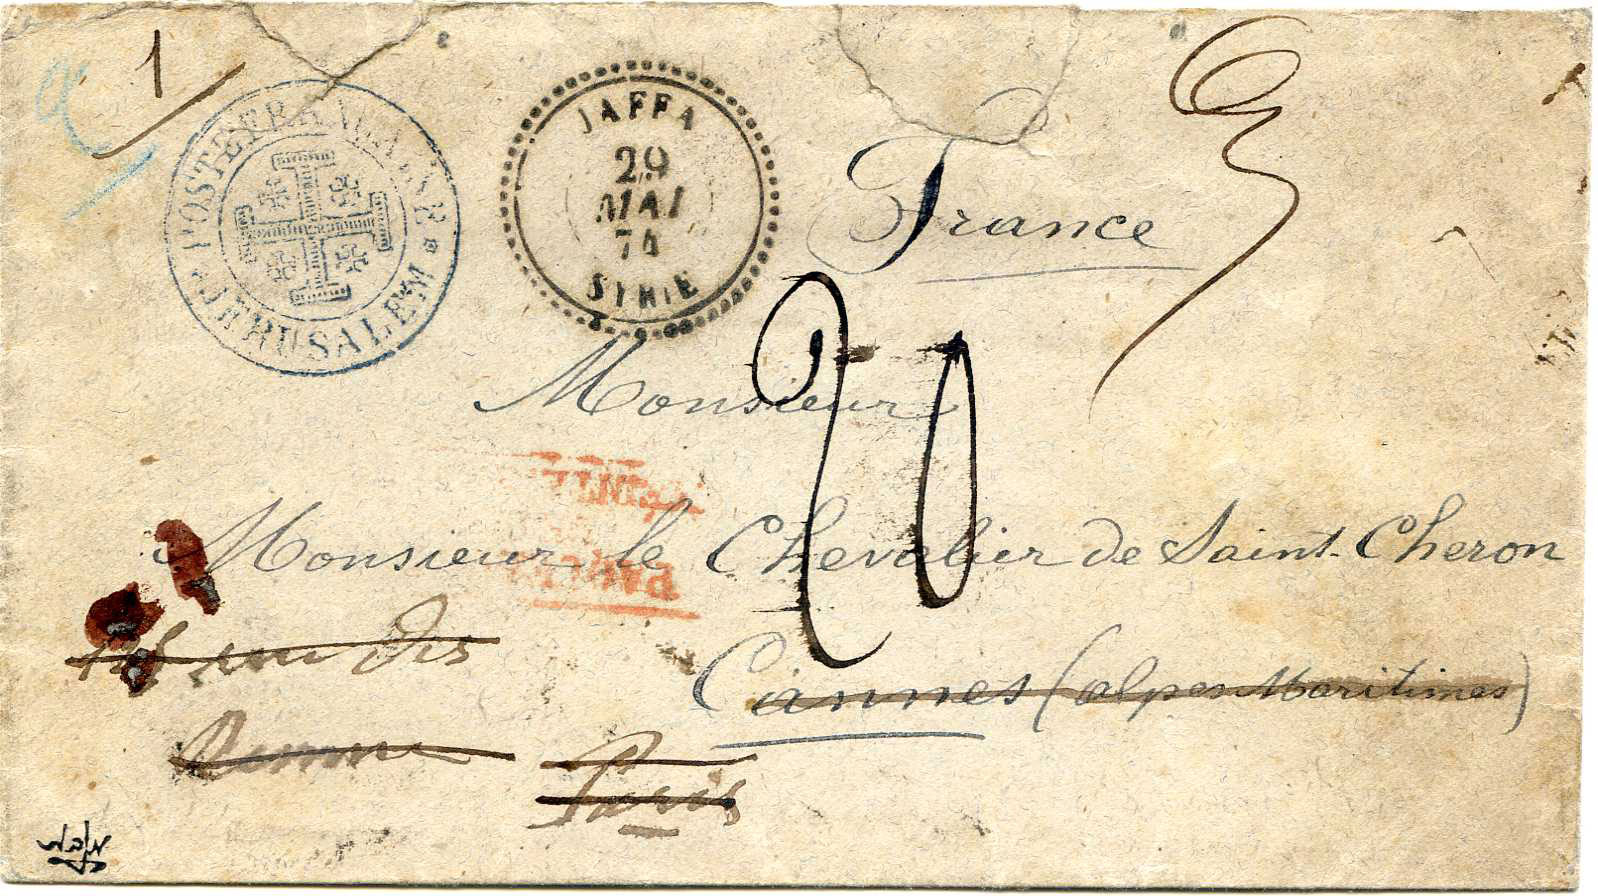 1
POSTE FRANÇAISE
JERUSALEM
JAFFA
29
MAI
74
SYRIE
France
20
Monsieur
Monsieur le Chevalier de Saint-Cheron
Cannes (Alpes Maritimes)
rue des
Paris